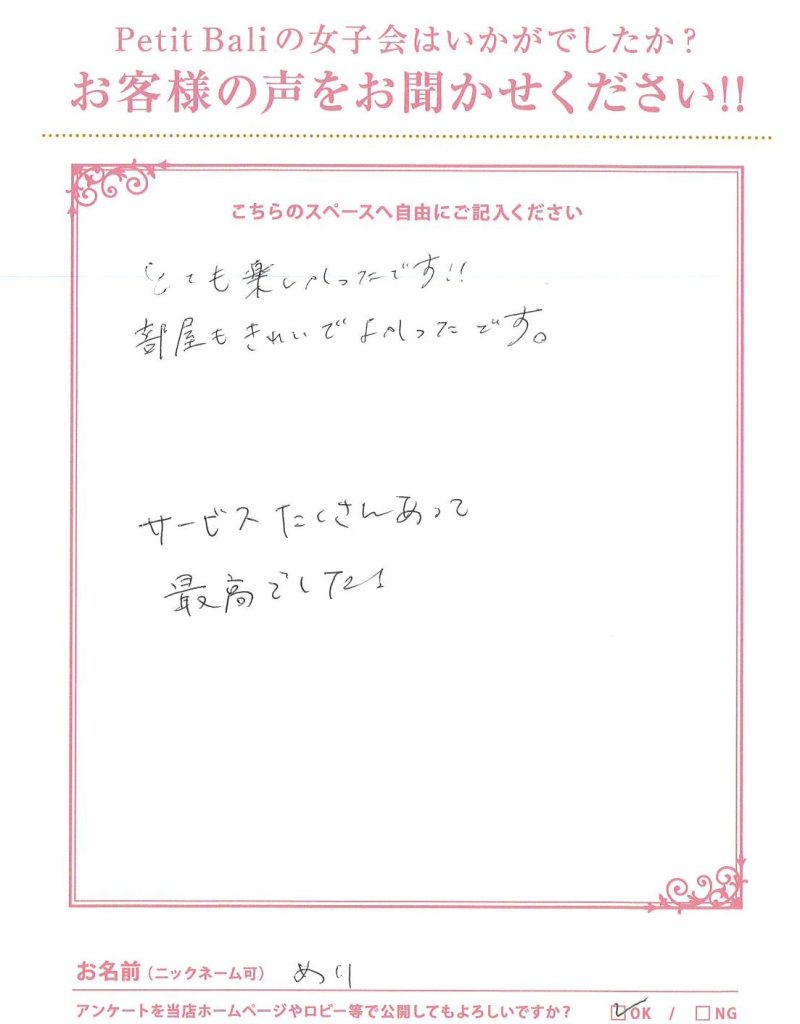 Petit Baliの女子会はいかがでしたか？
お客様の声をお聞かせください!!
こちらのスペースへ自由にご記入ください
とても楽しかったです!!
部屋もきれいでよかったです。
サービスたくさんあって
最高でした!
お名前（ニックネーム可） めり
アンケートを当店ホームページやロビー等で公開してもよろしいですか？ ☑OK / □NG